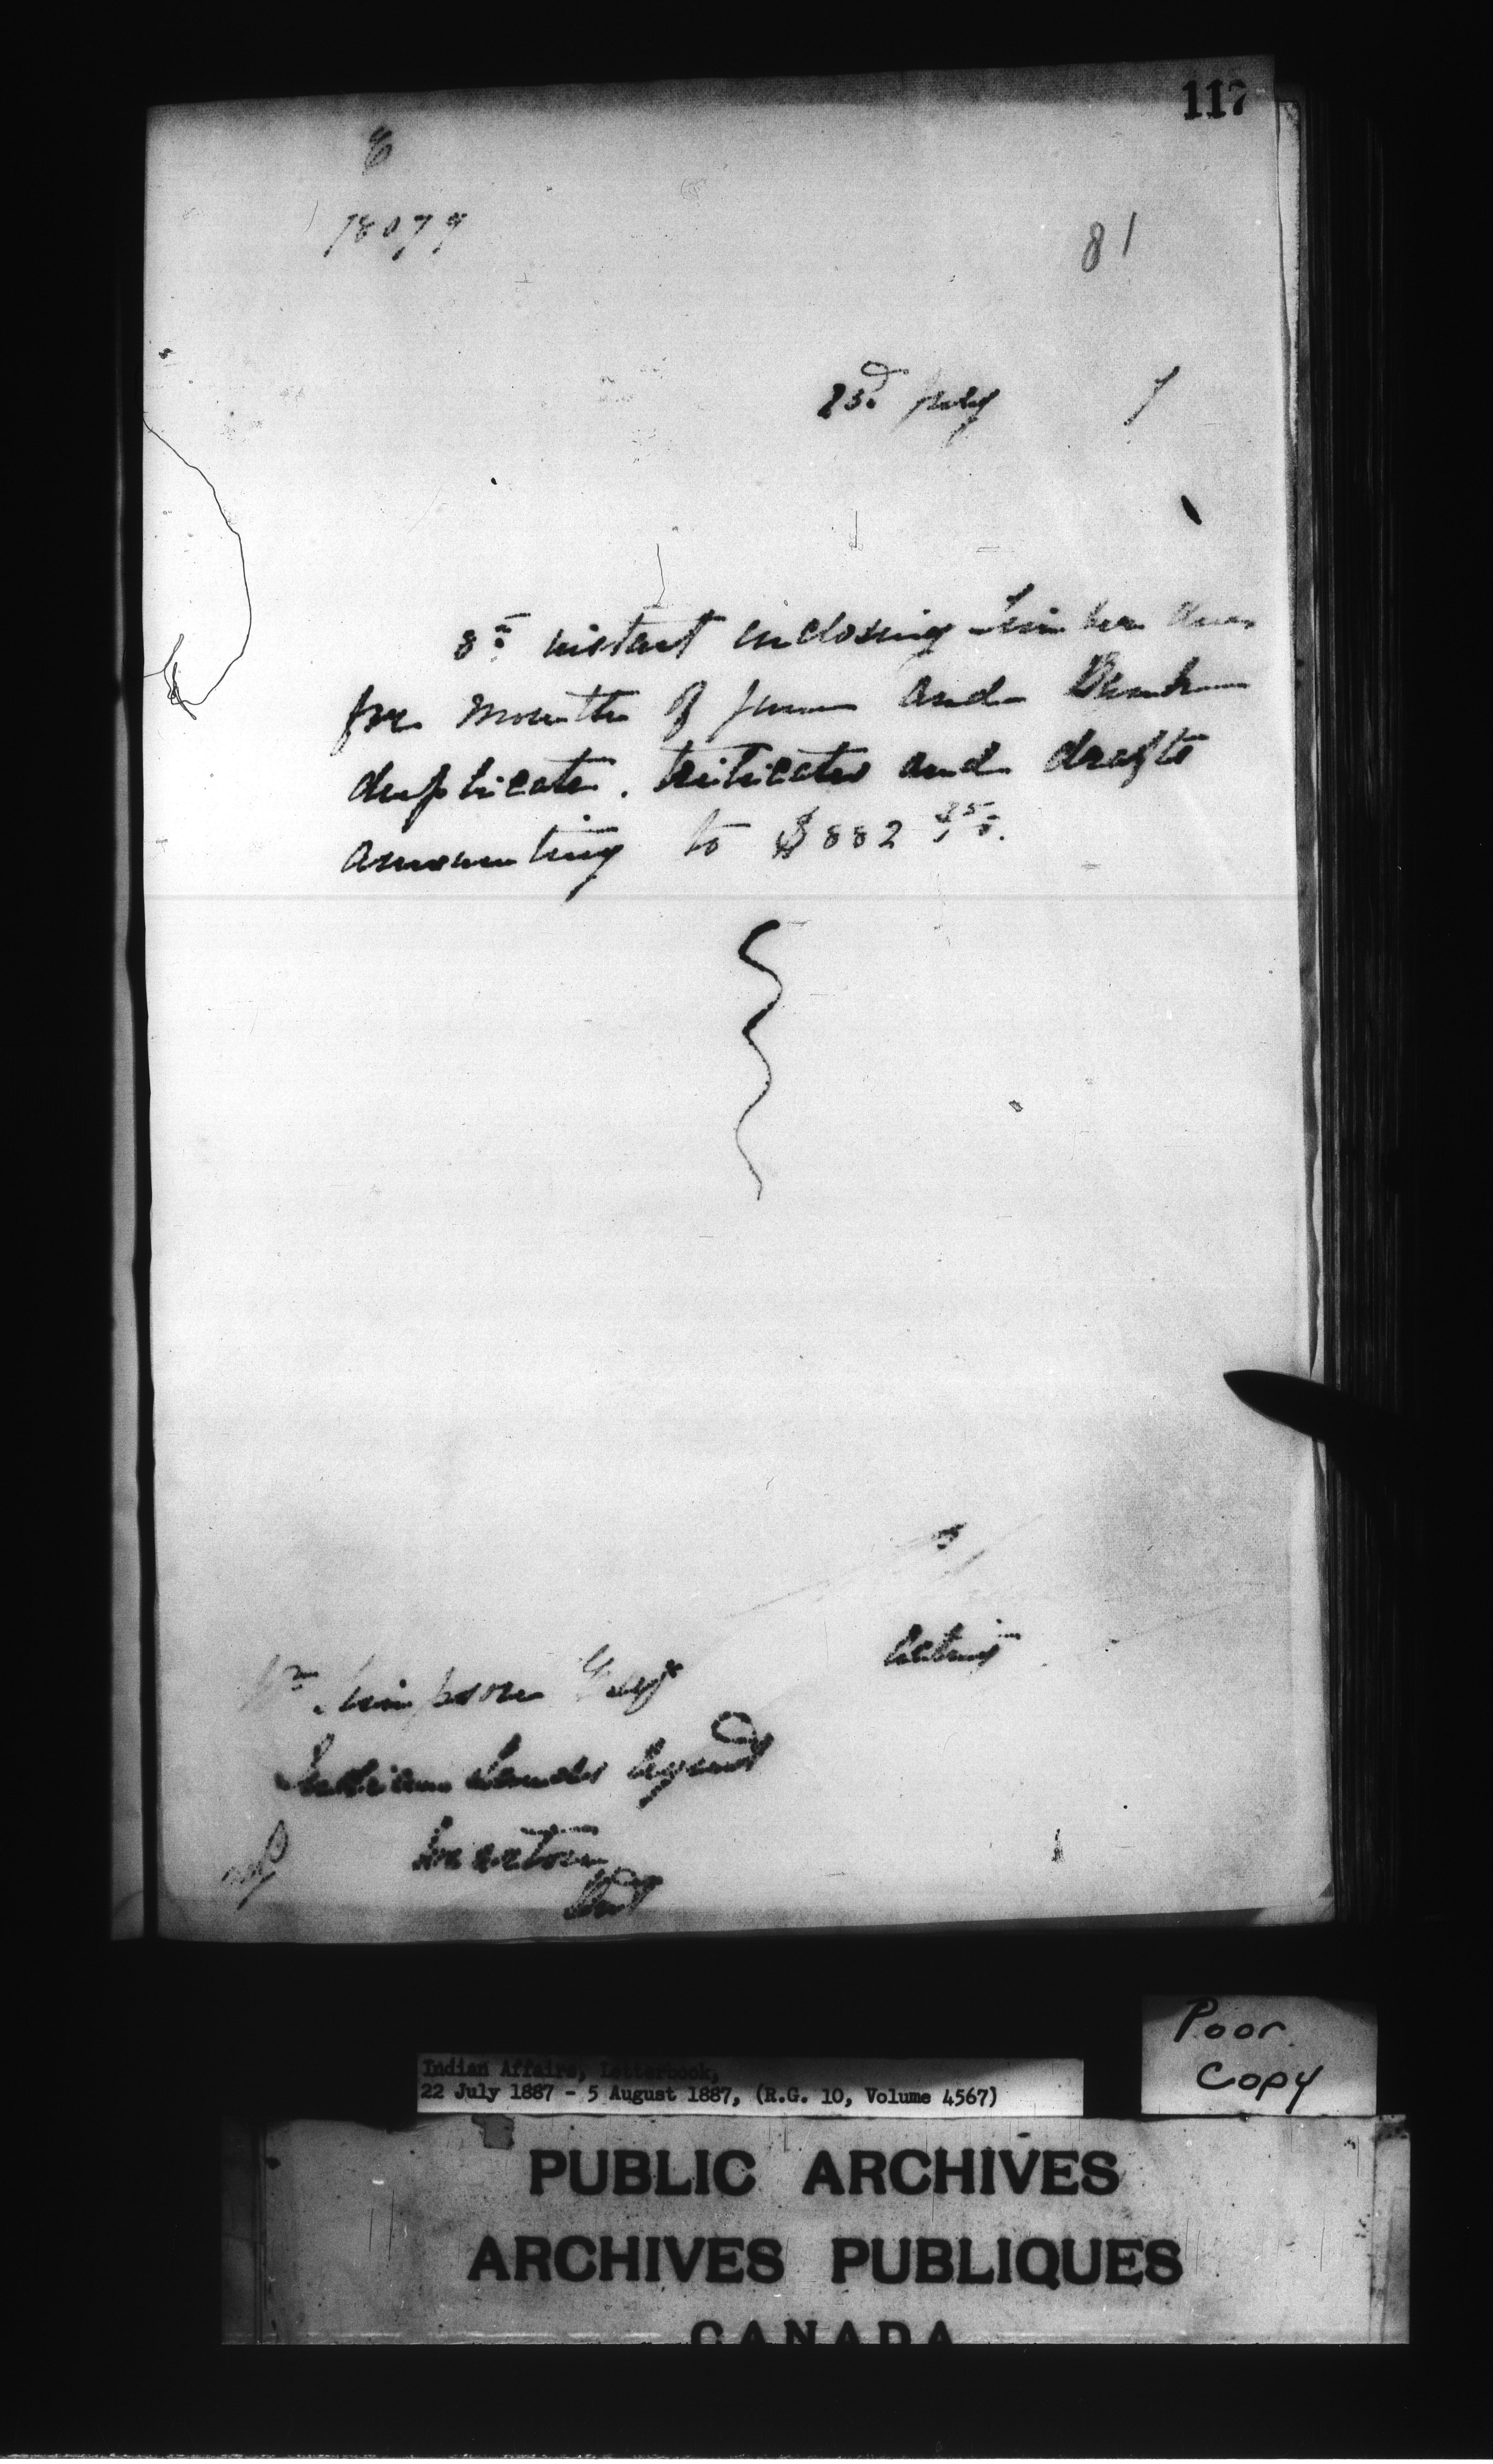 117
18079
81
23d July 7
8th instant inclosing Timber dues
for month of June and Bank
duplicate. triplicates and drafts
amounting to $882
Acting
Wm Simpson Esqr
Indian Lands Agent
Wiarton
Ont
Poor
Copy
Indian Affairs, Letterbook,
22 July 1887 - 5 August 1887, (R.G. 10, Volume 4567)
PUBLIC ARCHIVES
ARCHIVES PUBLIQUES
CANADA